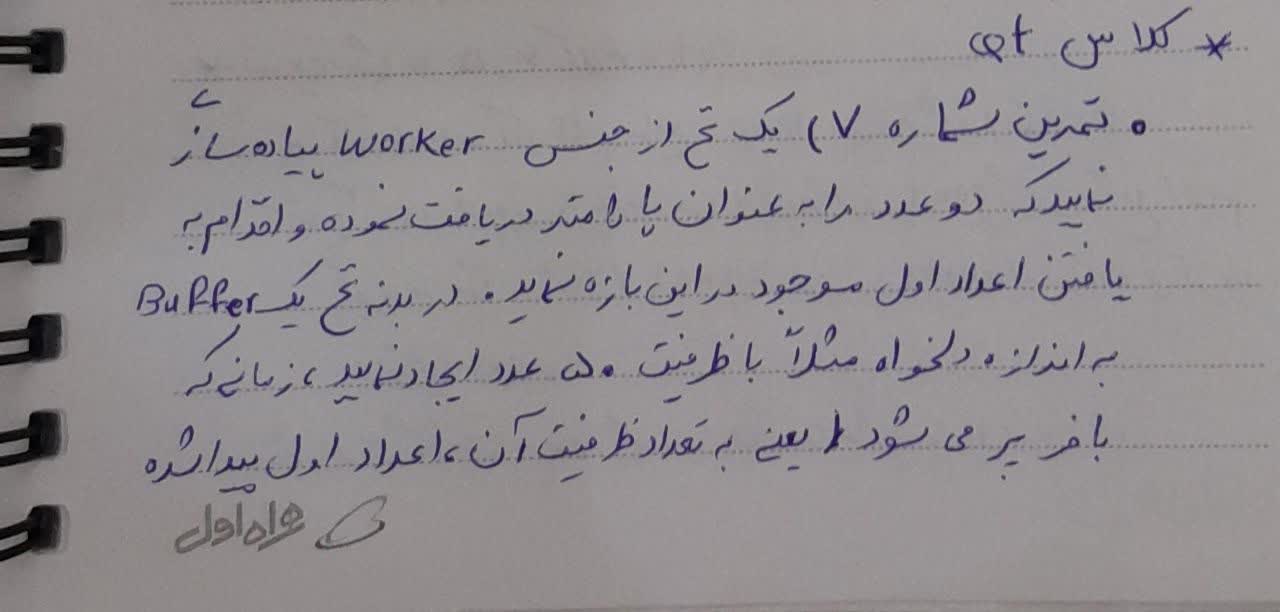 * کلاس Qt
• تمرین شماره ۷) یک نخ از جنس worker پیاده سازی
نمایید که دو عدد را به عنوان پارامتر دریافت نموده و اقدام به
یافتن اعداد اول موجود در این بازه نماید. در بدنه نخ یک Buffer
به اندازه دلخواه مثلاً با ظرفیت ۵۰ عدد ایجاد نمایید، زمانی که
بافر پر می شود (یعنی به تعداد ظرفیت آن، اعداد اول پیدا شده
همراه اول